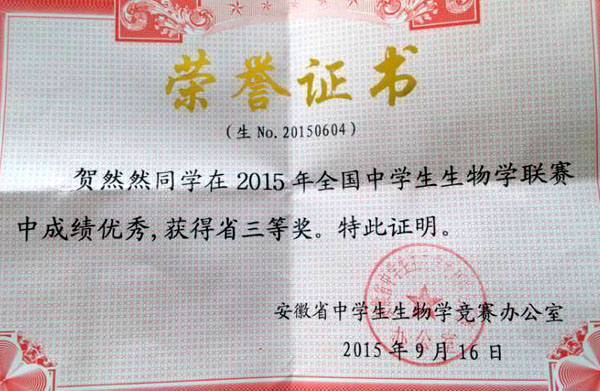 荣誉证书
(生 No. 20150604)
贺然然同学在 2015 年全国中学生生物学联赛
中成绩优秀,获得省三等奖。特此证明。
安徽省中学生生物学竞赛办公室
2015 年 9 月 16 日
办公室